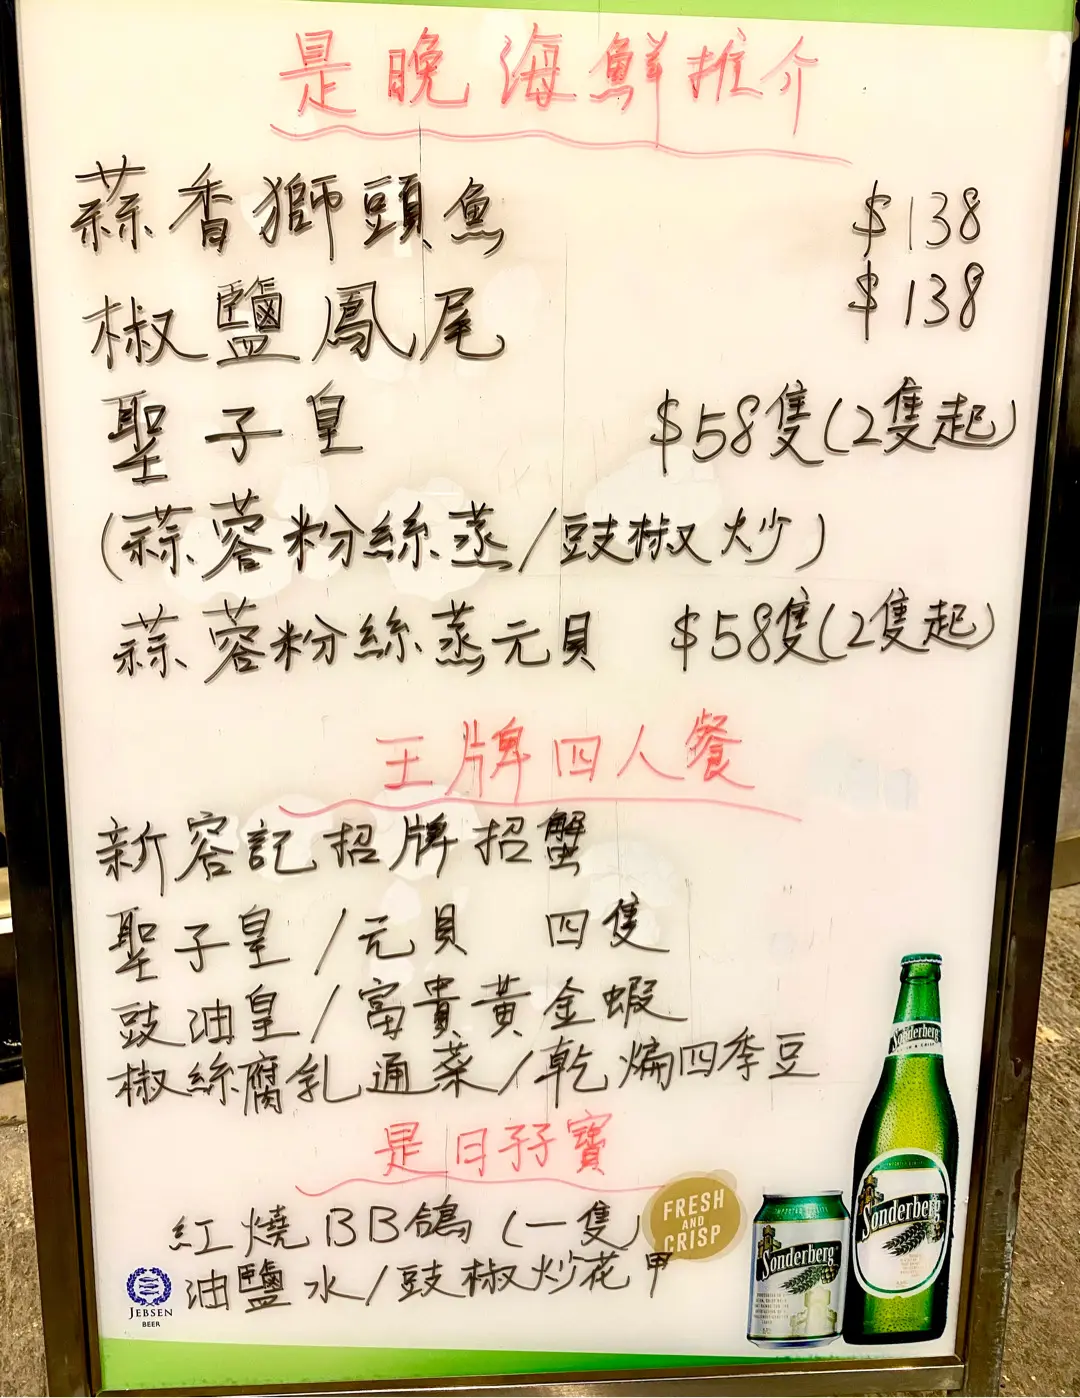 是晚海鮮推介
蒜香獅頭魚 $138
椒鹽鳳尾 $138
聖子皇 $58隻(2隻起)
(蒜蓉粉絲蒸/豉椒炒)
蒜蓉粉絲蒸元貝 $58隻(2隻起)
王牌四人餐
新容記招牌招蟹
聖子皇/元貝 四隻
豉油皇/富貴黃金蝦
椒絲腐乳通菜/乾煸四季豆
是日孖寶
紅燒BB鴿(一隻)
油鹽水/豉椒炒花甲
FRESH
AND
CRISP
Sonderberg
Sonderberg
Sonderberg
JEBSEN
BEER